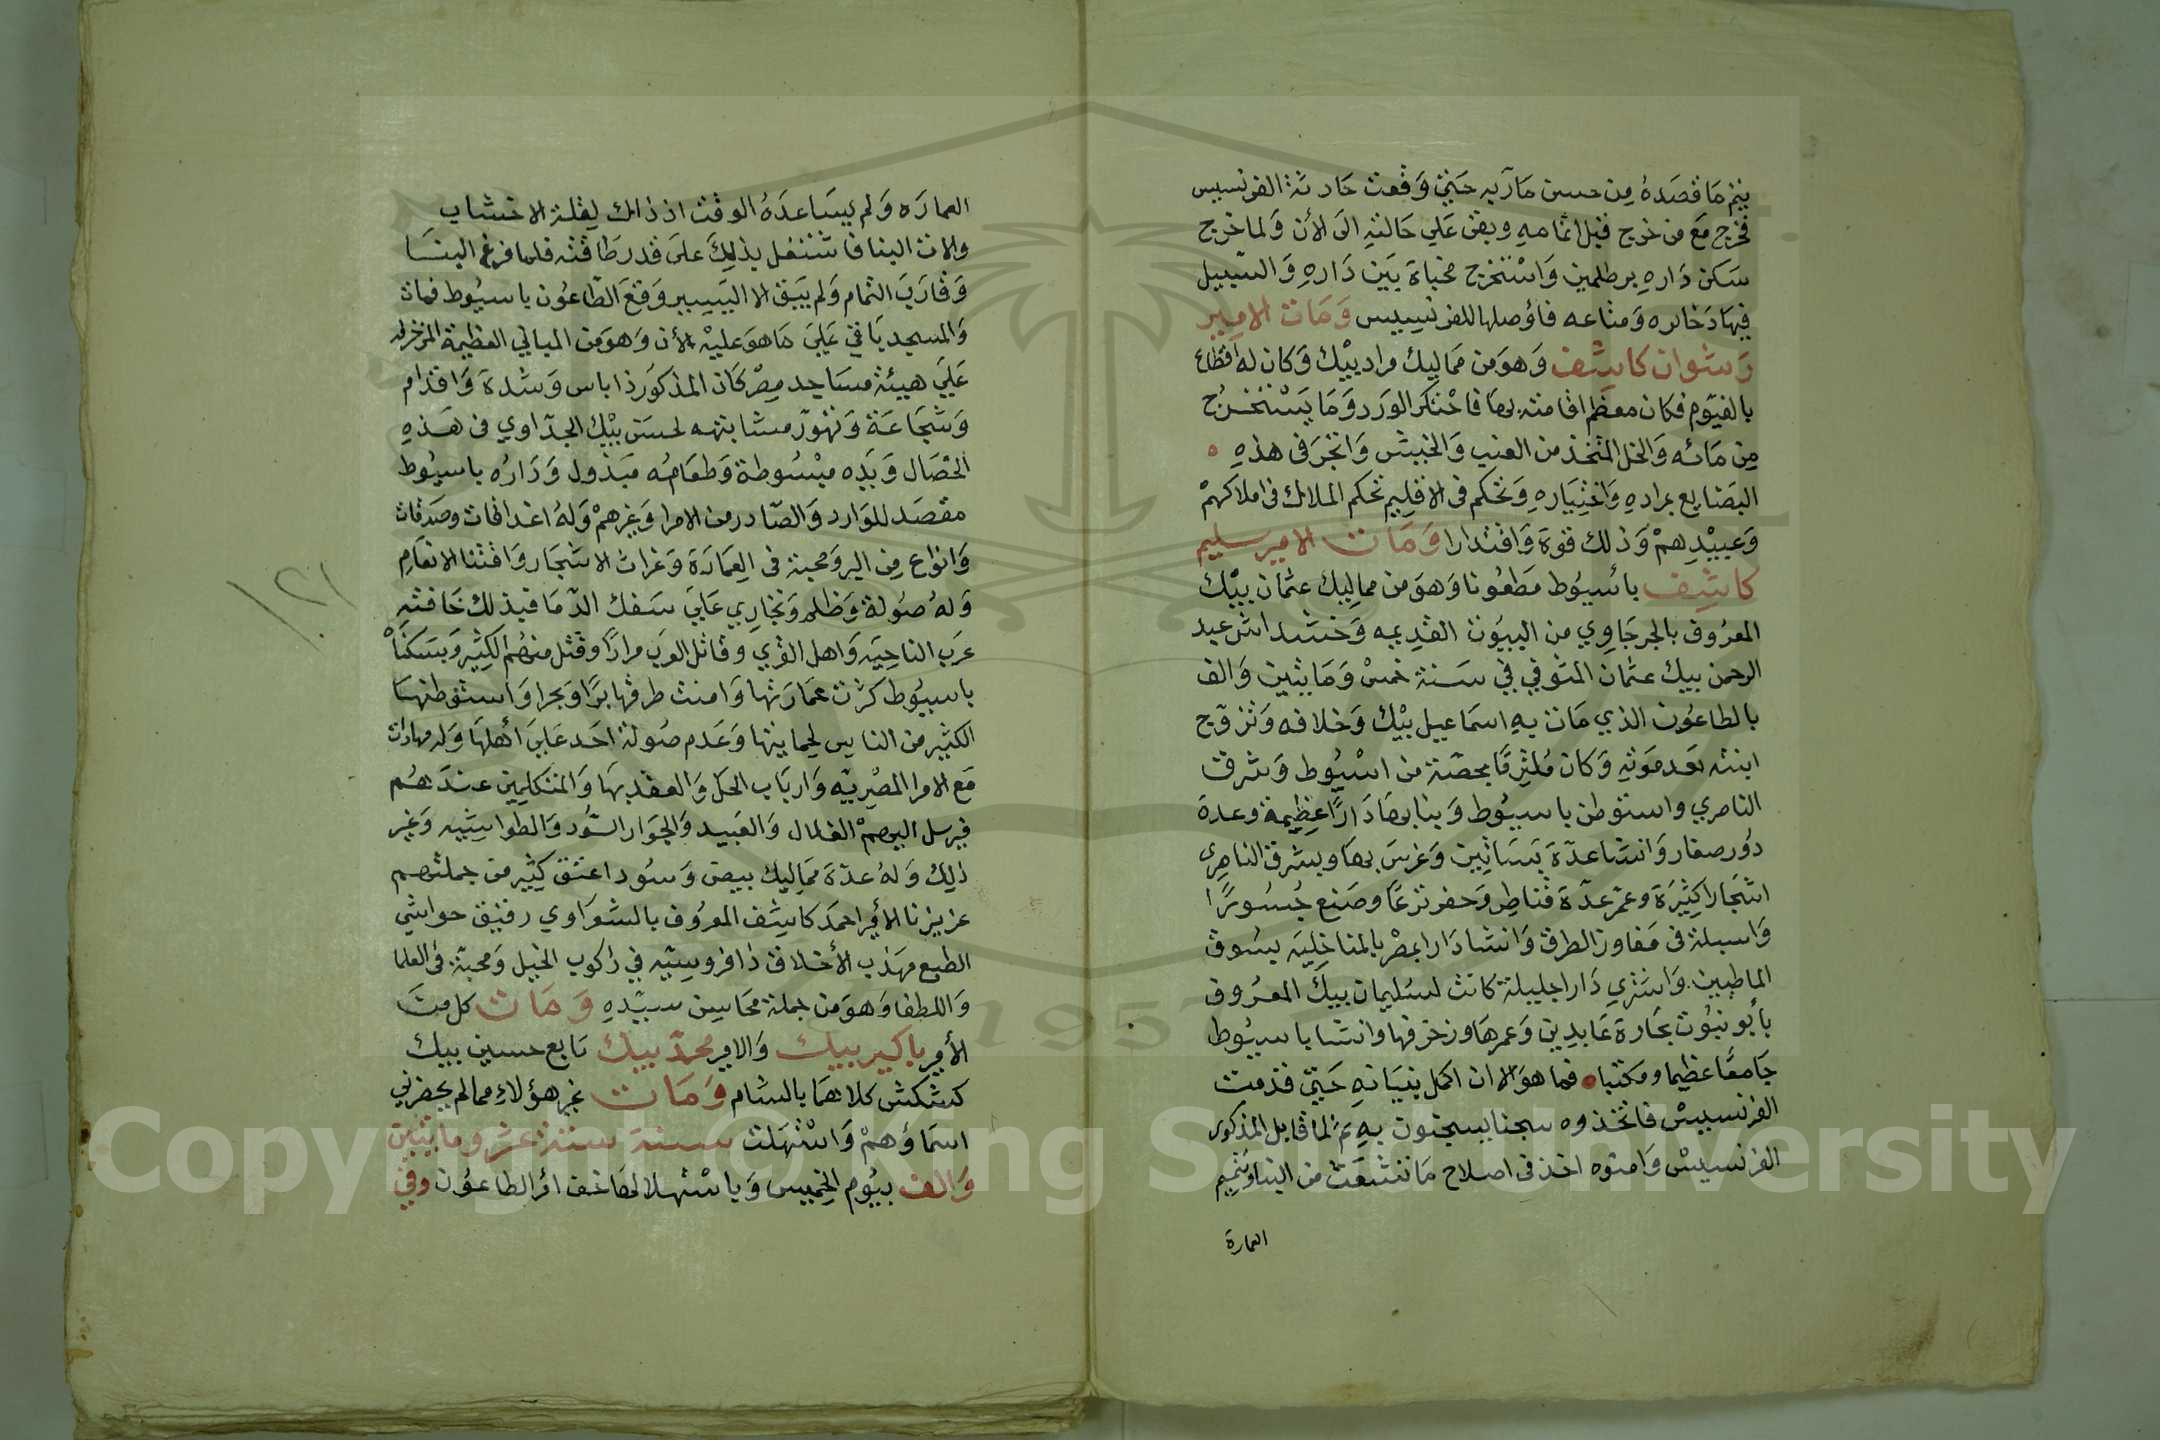 يتم مَا قصَدهُ مِن حسن مَآربه حَتي وَقعت حَادثة الفرنسيس
فخرج مَع من خرج قبل اتمامهِ وبقي عَلي حَالتهِ الى الأن وَلما خرج
سَكن دَاره برطلمين وَاستخرج مخباة بَين دَارهِ وَالسّبيل
فيها ذخائره وَمتاعه فاؤصلها للفرنسيس وَمَات الامِير
رَشوان كاشِف وَهوَ من مَماليك مراد بيْك وَكان له اقطاع
بالفيّوم فكان معظم اقامته بهَا فاحتكر الوَرد وَمَا يَسْتخرجُ
مِن مَائه وَالخل المتخذ من العنب وَالخيش وَاتجرَ فى هذهِ
البضَايع بمرادهِ وَاختِيَارهِ وَتحكم فى الاقليم تحكم الملاك فى املاكهمْ
وَعبيْدهمْ وَذلك قوة وَاقتدارا وَمَات الامير سليم
كاشِف بأسيُوط مَطعُونا وَهوَ من مماليك عثمان بيْك
المعرُوف بالجرجَاوي من البيُوت القدِيمه وَخشداش عبد
الرحمن بيك عثمان المتوفي في سَنة خمسْ وَمَايتين وَالف
بالطاعُون الذي مَات بهِ اسمَاعيل بيْك وَخلافه وَتزوّج
ابنته بَعد مَوتهِ وَكان مُلتزمًا بحصّة من اسْيُوط وَشرق
الناصري واستوطن باسيُوط وَبنا بهَا دَارًا عظيمة وعدة
دُور صغار وَانشا عدّة بَسَاتين وَغرسَ بهَا وبشرق الناصِري
اشجَارا كثيرَة وعمّر عدّة قناطِر وَحفر تُرعًا وصَنع جُسُورًا
وَاسبلة فى مَفاوز الطرق وَانشا دَارا بمصْر بالمناخليَه بسُوق
الماطيين وَاشتري دَارا جليلة كانت لسُليمان بيك المعرُوف
بأبو نبُوت بحَارة عَابدين وَعمرهَا وزخرفها وانشا باسيُوط
جَامعًا عظيما ومكتبا فما هوَ الا ان اكمل بنيَانه حَتي قدمت
الفرنسيسْ فاتخذوه سجنا يسجنون بهِ ثم لما قابل المذكور
الفرنسيسْ وَامنوه اخذ فى اصلاح مَا تشعّث من البنا وَتميم
العمارة
العمارَه وَلم يسَاعدَهُ الوقت اذ ذاك لِقلة الاخشاب
والات البنا فاشتغل بذلِكَ على قدر طَاقته فلما فرغ البنَا
وَقاربَ التمام وَلم يَبق الا اليَسِير وَقعَ الطّاعُون باسيُوط فمات
وَالمسجد بَاقي عَلي مَا هوَ عليْه الأن وَهوَ من المباني العظيمة المزخرفه
عَليَ هيئة مسَاجد مصْر كَان المذكوَر ذا باس وَشدة وَاقدام
وَشَجَاعَة وَتهوّر مشابهته لحسَن بيْك الجدّاوي فى هَذهِ
الخصَال وَيَده مبْسُوطة وَطعَامُه مَبذول وَدَارُه باسيُوط
مقصَد للوَارد وَالصّادر من الامرا وَغيرهمْ وَلهُ اغداقات وصَدقات
وَانوَاع مِن البر وَمحبة فى العِمَارَة وَغراث الاشجَار وَاقتنا الانعَام
وَلهُ صَولة وَظلم وَتجاري عَليَ سَفك الدّمَا فبذلك خَافته
عرَب الناحيَه وَاهل القري وقاتل العرَب مرارًا وقتل منهُم الكثير وَبسَكناهْ
باسيُوط كثرت عمَارَتها وَامنت طرقها برًّا وَبحرا وَاستوطنهَا
الكثير من الناس لحمايتها وَعدم صَولة احَد عَليَ أهلهَا وَله مهادات
مَع الامرا المصْريّه وَاربَاب الحَل وَالعقد بهَا وَالمتكلمين عندَهُم
فيرسل اليهمْ الغلال وَالعَبيد وَالجوَار السُّود وَالطواشيه وَغير
ذلِك وَلهُ عدّة مَماليك بيض وَسُود اعتق كثير من جملتهم
عزيزنا الأمير احمَد كاشِف المعرُوف بالشعرَاوي رقيق حواشي
الطبع مهَذب الأخلاق ذا فروسِيّه في راكوب الخيل وَمحبّة فى العلما
وَاللطفا وَهوَ من جملة محَاسِن سيّدهِ وَمَات كل من
الأمير باكير بيك وَالامير محمّد بيك تابع حسين بيك
كشكش كلاهمَا بالشام وَمَات غير هؤلاءِ مما لم يحضرني
اسمَاؤهمْ وَاسْتهلت سنة ستة عشر ومايتين
وَالف بيُوم الخميس وَباسْتهلالهَا خف امر الطاعُون وفي
١٢١